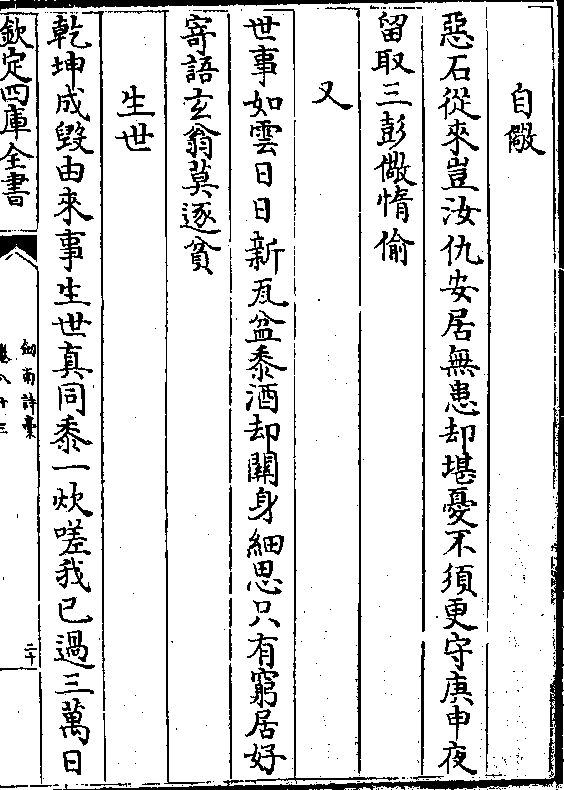 自儆
惡石從來豈汝仇安居無患却堪憂不須更守庚申夜
留取三彭儆惰偷
又
世事如雲日日新瓦盆黍酒却關身細思只有窮居好
寄語玄翁莫逐貧
生世
乾坤成毀由來事生世真同黍一炊嗟我已過三萬日
欽定四庫全書
劍南詩稾
卷八十三
二十